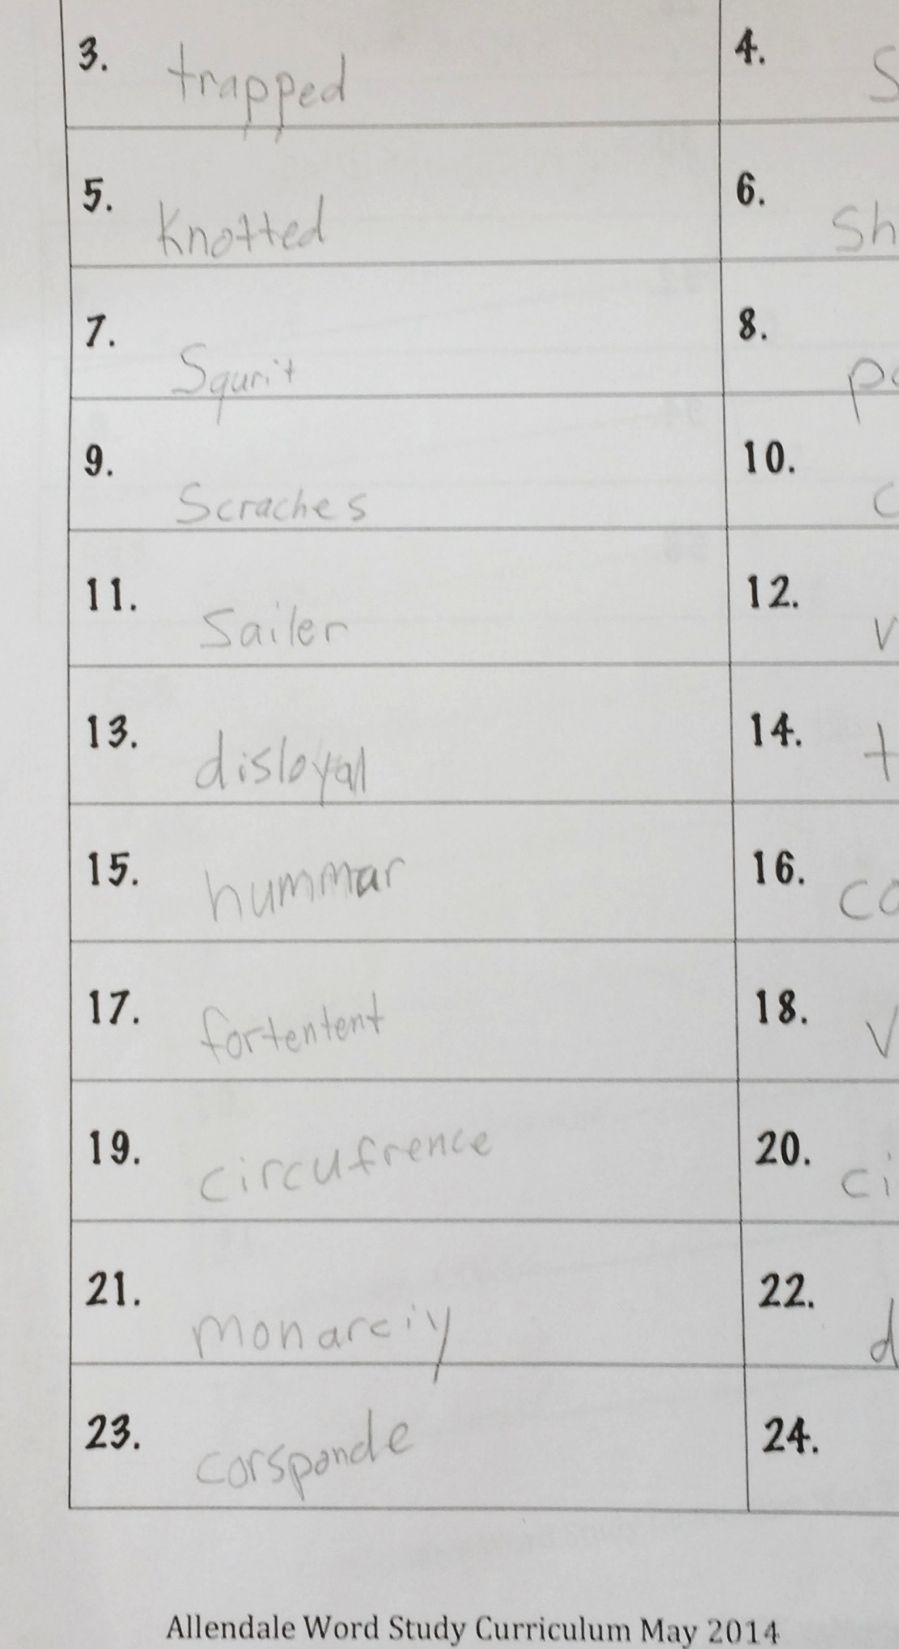 3. trapped
4. S
5. Knotted
6. Sh
7. Squrit
8. pa
9. Scraches
10. c
11. Sailer
12. v
13. disloyal
14. t
15. hummar
16. co
17. fortentent
18. v
19. circufrence
20. ci
21. monarciy
22. d
23. corsponde
24.
Allendale Word Study Curriculum May 2014